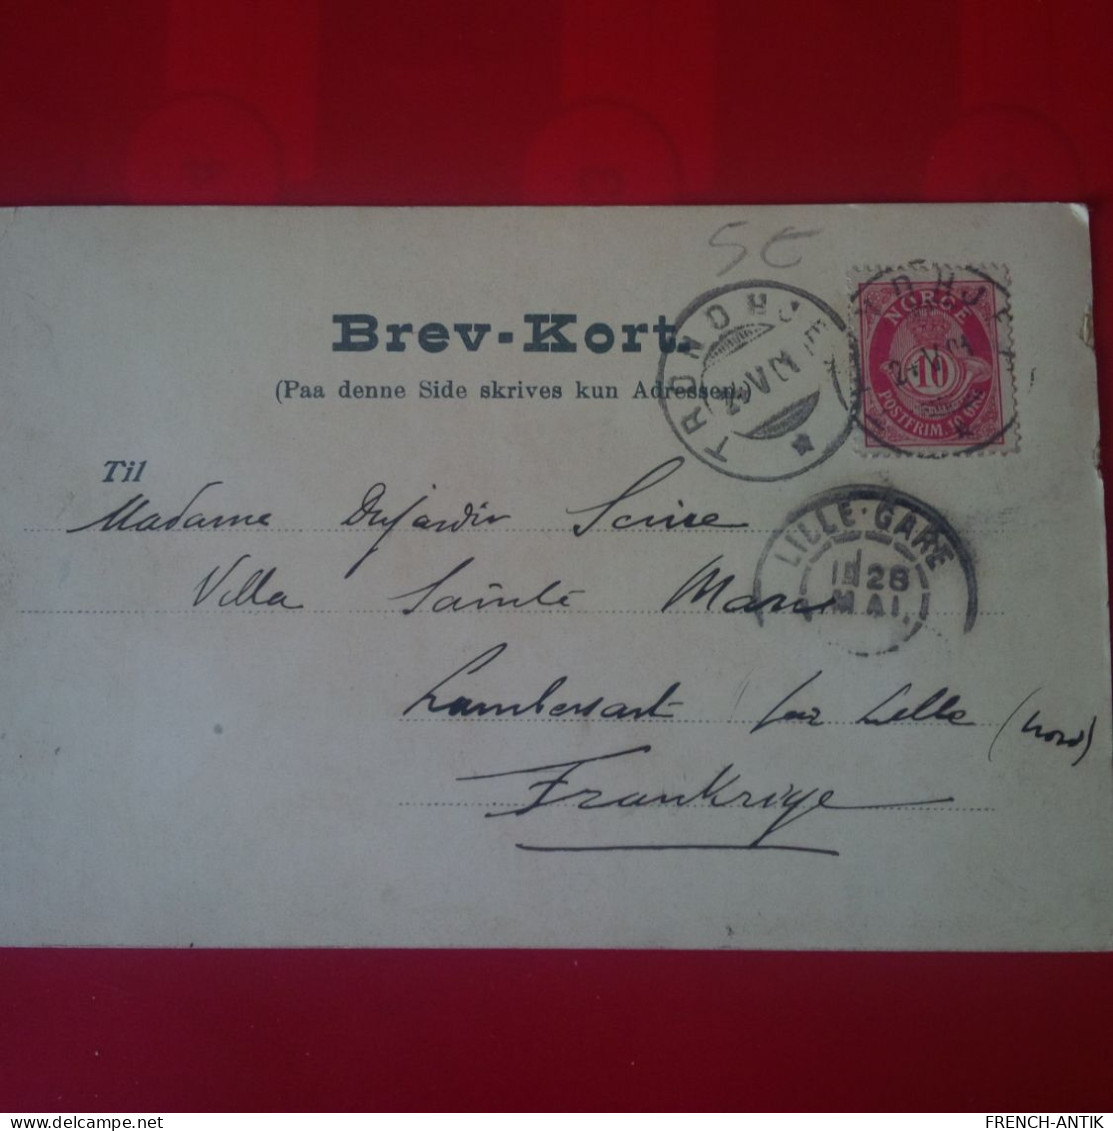 5€
Brev-Kort.
(Paa denne Side skrives kun Adressen)
TRONDHJEM
V 01
NORGE
10
POSTFRIM. 10 ØRE
Til
Madame Dujardin Scrive
LILLE-GARE
28
MAI
Villa Sainte Marie
Lambersart par Lille (Nord)
Frankrige
FRENCH-ANTIK